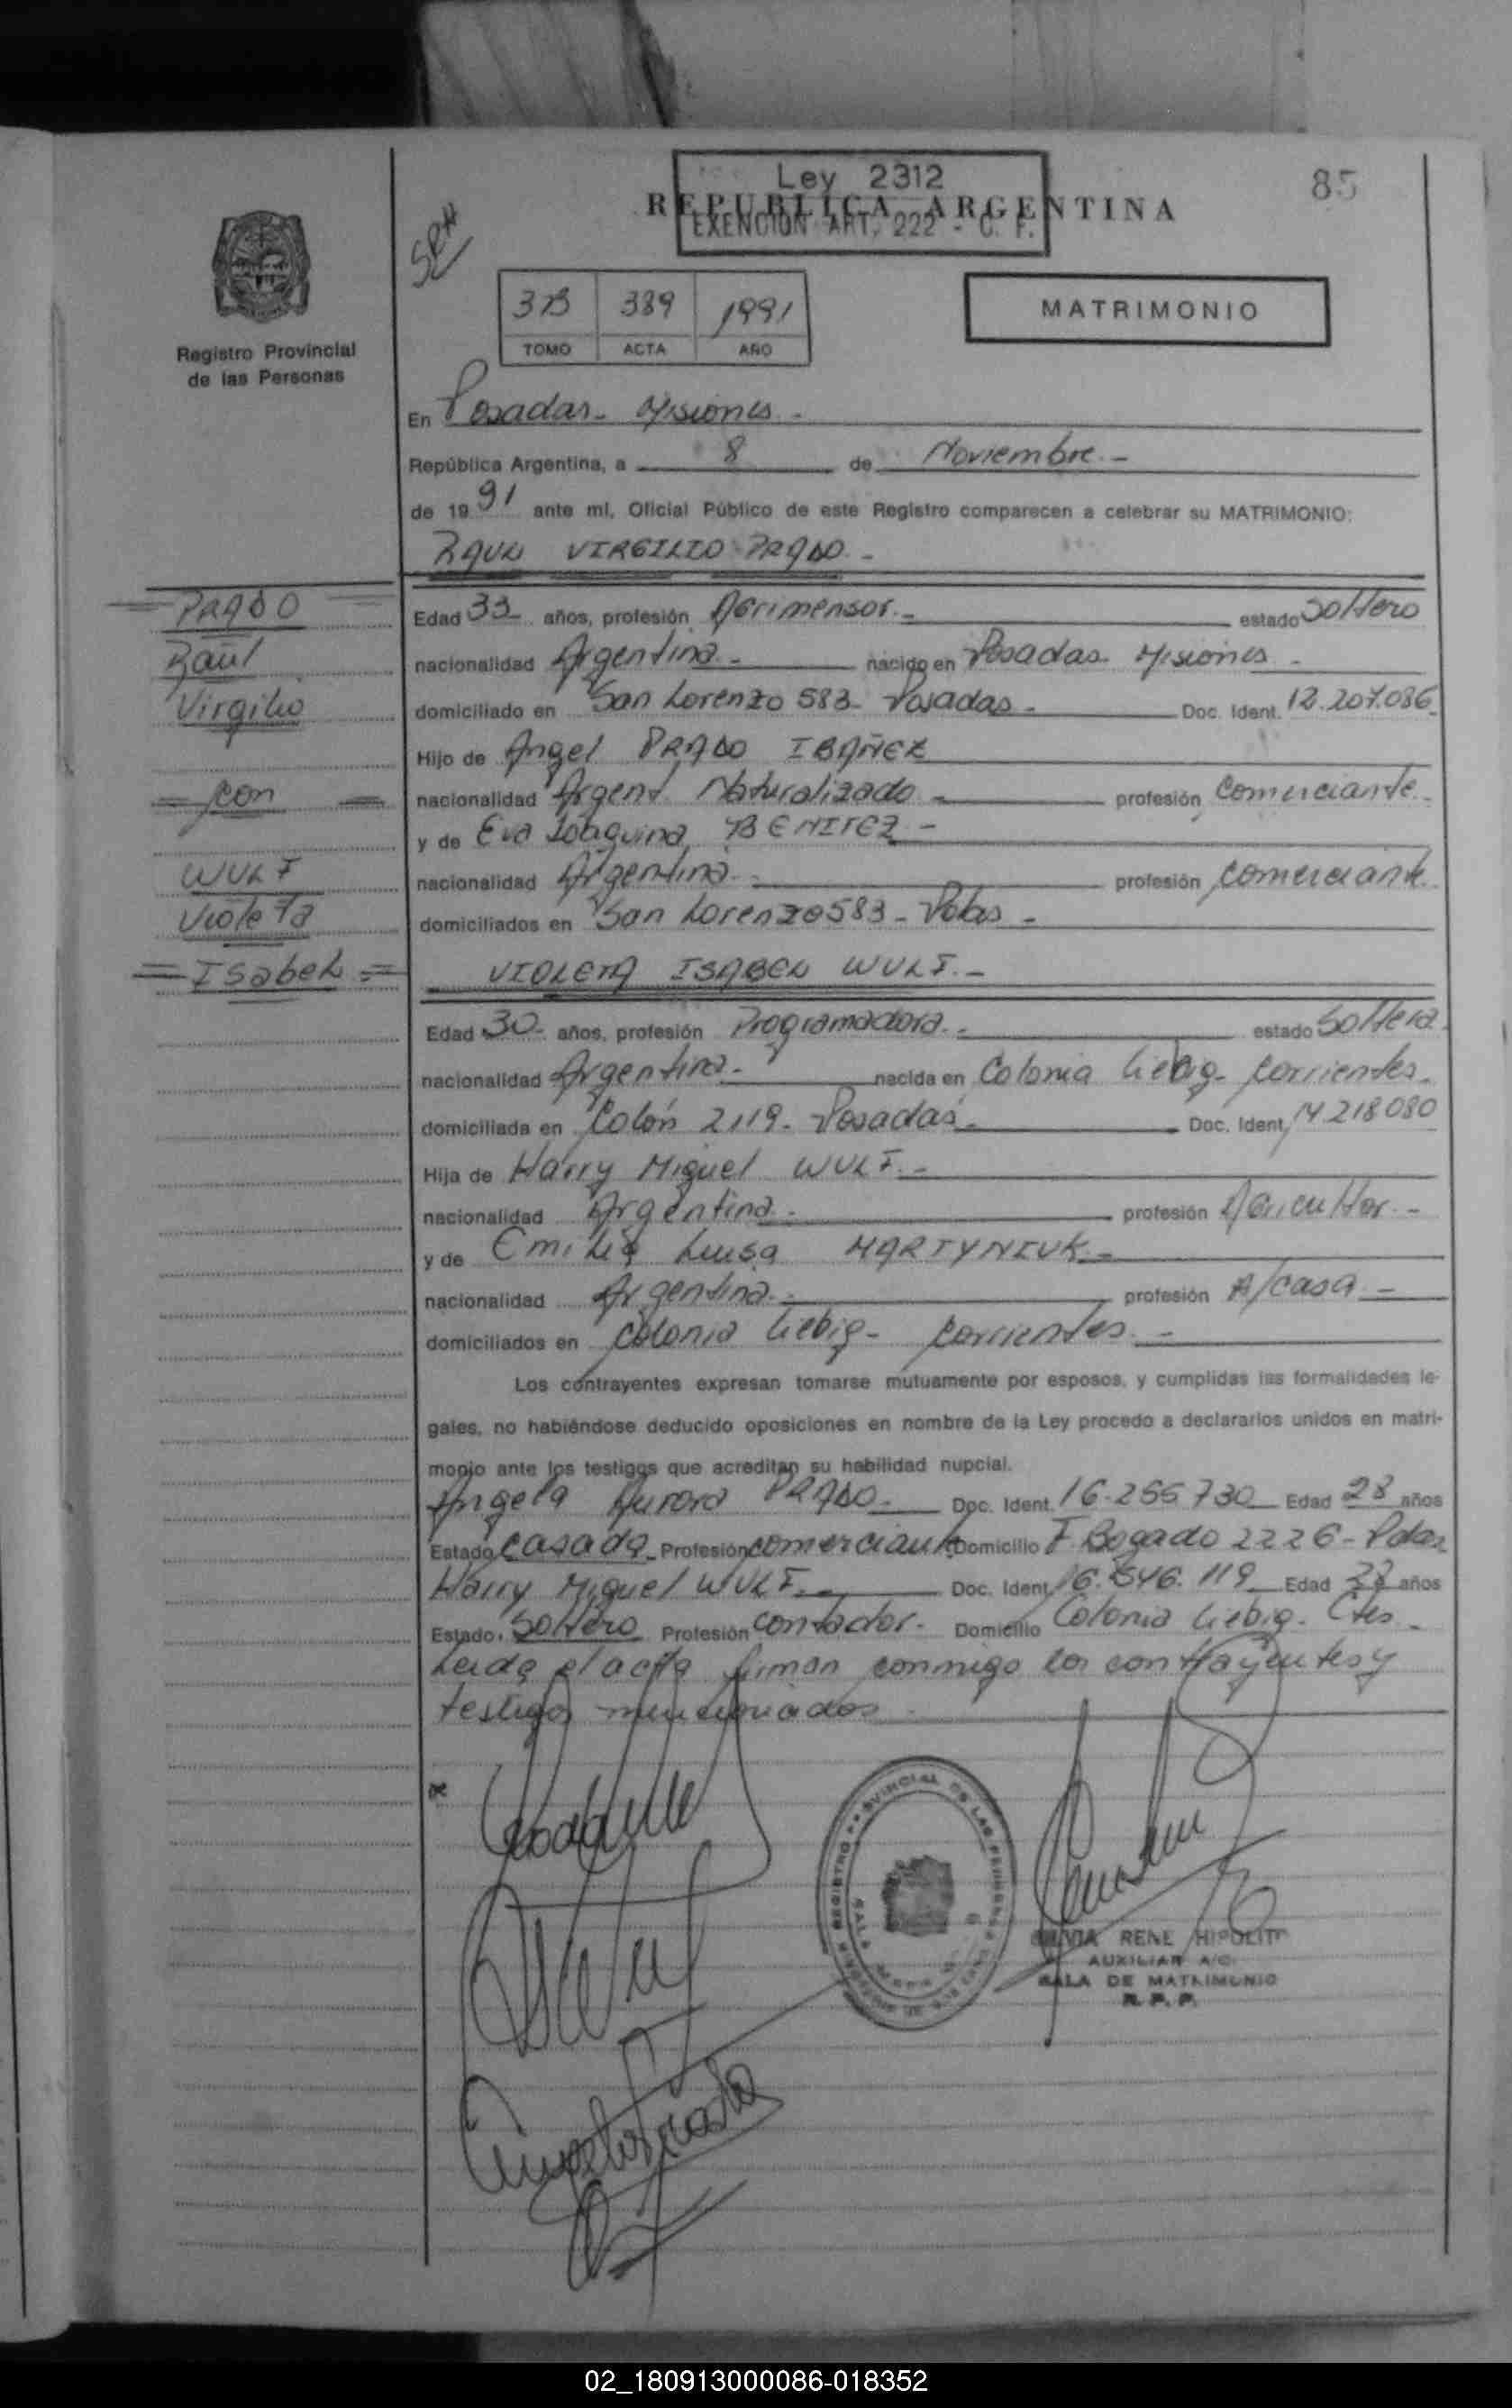 85
Ley 2312
REPUBLICA ARGENTINA
EXENCION ART. 222 - C. F.
Registro Provincial
de las Personas
373 389 1991
TOMO ACTA AÑO
MATRIMONIO
En Posadas - Misiones -
República Argentina, a 8 de Noviembre -
de 1991 ante mí, Oficial Público de este Registro comparecen a celebrar su MATRIMONIO:
RAUL VIRGILIO PRADO -
PRADO
Raúl
Virgilio
= con =
WULF
Violeta
= Isabel =
Edad 33 años, profesión Agrimensor - estado Soltero
nacionalidad Argentina - nacido en Posadas Misiones -
domiciliado en San Lorenzo 583 - Posadas - Doc. Ident. 12.207.086
Hijo de Angel PRADO IBAÑEZ
nacionalidad Argent. Naturalizado - profesión Comerciante -
y de Eva Joaquina BENITEZ -
nacionalidad Argentina - profesión comerciante
domiciliados en San Lorenzo 583 - Pdas -
VIOLETA ISABEL WULF -
Edad 30 años, profesión Programadora - estado Soltera
nacionalidad Argentina - nacida en Colonia Liebig - Corrientes -
domiciliada en Colón 2119 - Posadas - Doc. Ident. 14.218080
Hija de Harry Miguel WULF -
nacionalidad Argentina - profesión Agricultor -
y de Emilia Luisa MARTYNIUK -
nacionalidad Argentina - profesión A/casa -
domiciliados en Colonia Liebig - Corrientes -
Los contrayentes expresan tomarse mutuamente por esposos, y cumplidas las formalidades le-
gales, no habiéndose deducido oposiciones en nombre de la Ley procedo a declararlos unidos en matri-
monio ante los testigos que acreditan su habilidad nupcial.
Angela Aurora PRADO - Doc. Ident. 16.255730 Edad 28 años
Estado casada Profesión comerciante Domicilio F. Bogado 2226 - Pdas
Harry Miguel WULF - Doc. Ident. 16.546.119 Edad años
Estado Soltero Profesión contador - Domicilio Colonia Liebig - Ctes -
Leida el acta firman conmigo los contrayentes y
testigos mencionados
REGISTRO PROVINCIAL DE LAS PERSONAS
SILVIA RENE HIPOLITO
AUXILIAR A/C
SALA DE MATRIMONIO
R. P. P.
02_180913000086-018352